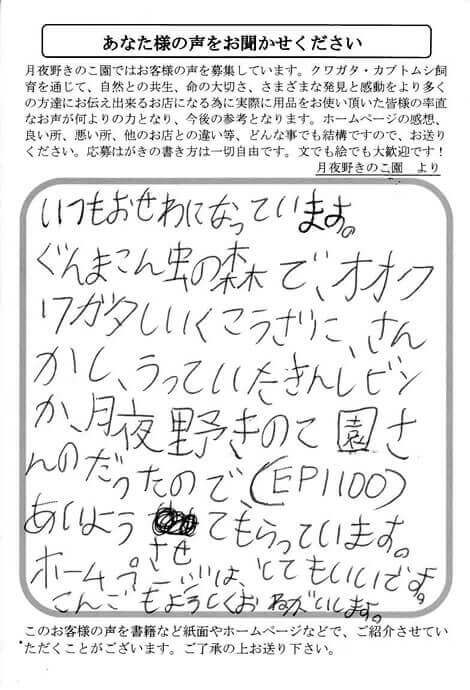 あなた様の声をお聞かせください
月夜野きのこ園ではお客様の声を募集しています。クワガタ・カブトムシ飼
育を通じて、自然との共生、命の大切さ、さまざまな発見と感動をより多く
の方達にお伝え出来るお店になる為に実際に用品をお使い頂いた皆様の率直
なお声が何よりの力となり、今後の参考となります。ホームページの感想、
良い所、悪い所、他のお店との違い等、どんな事でも結構ですので、お送り
ください。応募はがきの書き方は一切自由です。文でも絵でも大歓迎です！
月夜野きのこ園　より
いつもおせわになっています。
ぐんまこん虫の森で、オオク
ワガタしいくこうざに、さん
かし、うっていたきんしビン
が、月夜野きのこ園さ
んのだったので、(EP1100)
あいようさせてもらっています。
ホームページは、とてもいいです。
こんごもよろしくおねがいします。
このお客様の声を書籍など紙面やホームページなどで、ご紹介させてい
ただくことがございます。ご了承の上お送り下さい。